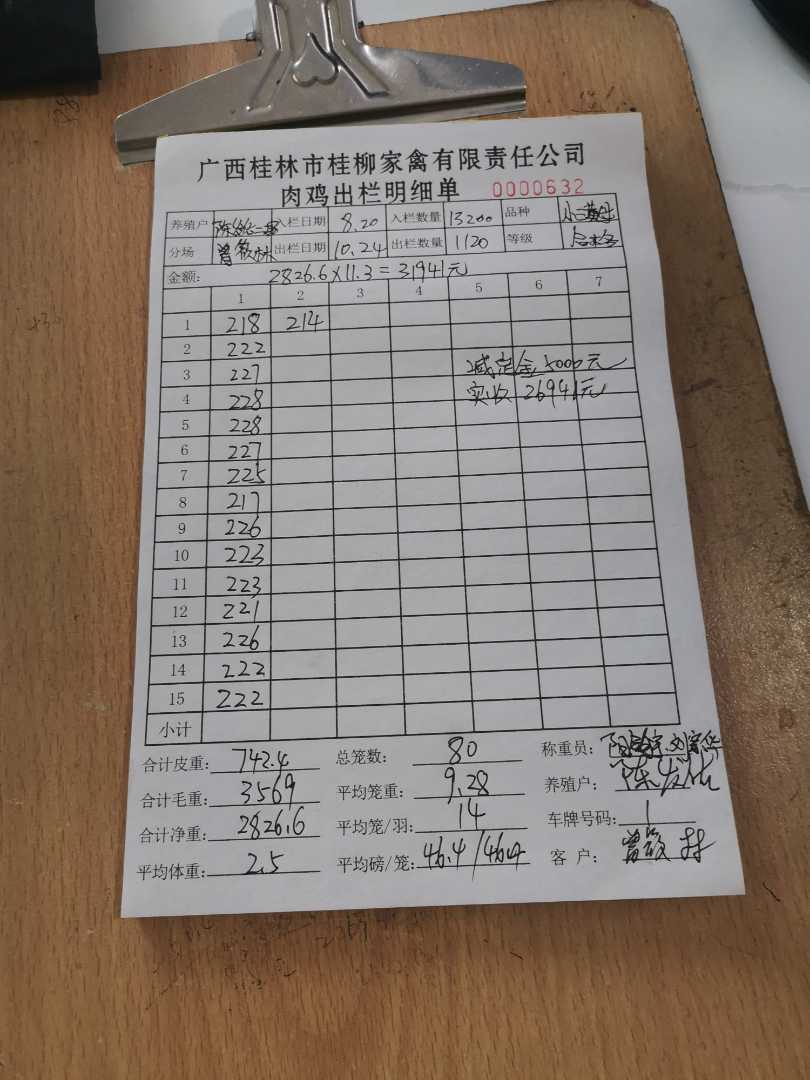 广西桂林市桂柳家禽有限责任公司
肉鸡出栏明细单 0000632
养殖户 入栏日期 8.20 入栏数量 13200 品种
分场 出栏日期 10.24 出栏数量 1120 等级
金额: 2826.6×11.3=31941元
1 2 3 4 5 6 7
1 218 214
2 222
3 227 减定金5000元
4 228 实收 26941元
5 228
6 227
7 225
8 217
9 226
10 223
11 223
12 221
13 226
14 222
15 222
小计
合计皮重: 742.4 总笼数: 80 称重员:
合计毛重: 3569 平均笼重: 9.28 养殖户:
合计净重: 2826.6 平均笼/羽: 14 车牌号码: 1
平均体重: 2.5 平均磅/笼: 46.4/46.4 客户: